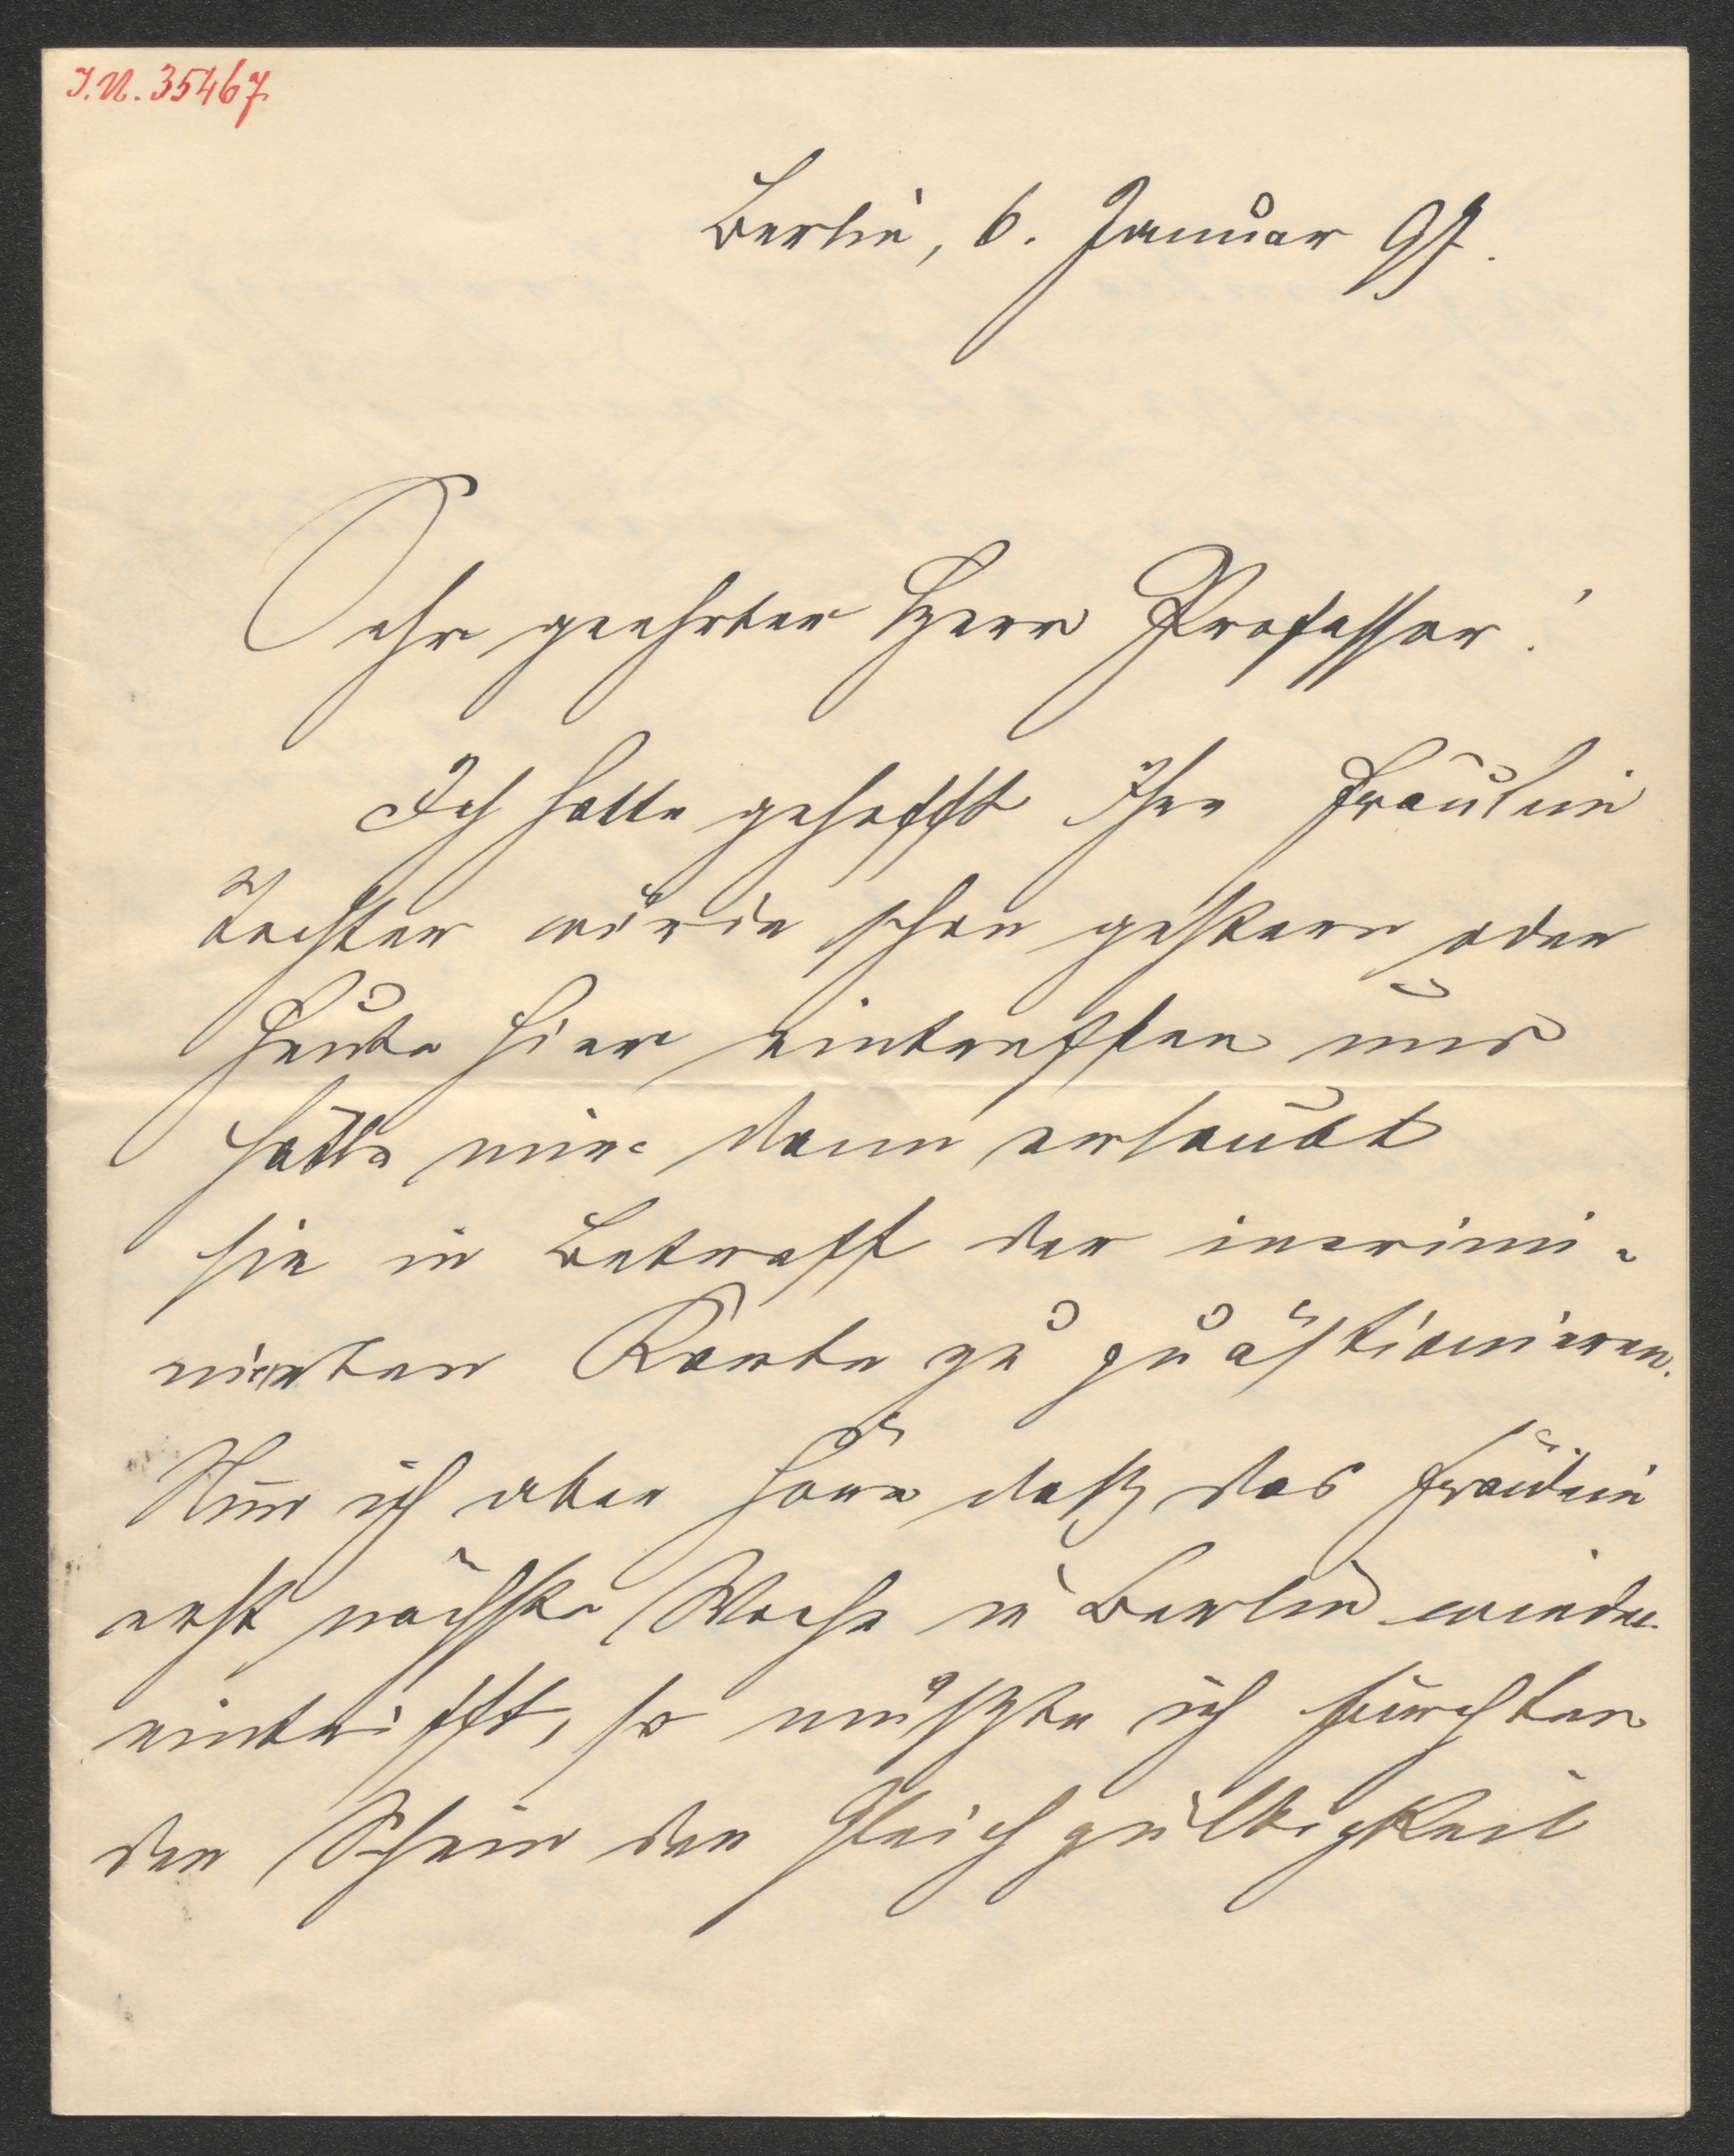 J.N. 35467
Berlin, 6. Januar 97.
Sehr geehrter Herr Professor!
Ich hatte gehofft Ihr Fräulein
Tochter würde schon gestern oder
heute hier eintreffen und
hätte mir dann erlaubt
sie in Betreff der incrimi-
nierten Karte zu quästionieren.
Nun ich aber höre daß das Fräulein
erst nächste Woche in Berlin wieder
eintrifft, so müßte ich fürchten
den Schein der Gleichgültigkeit